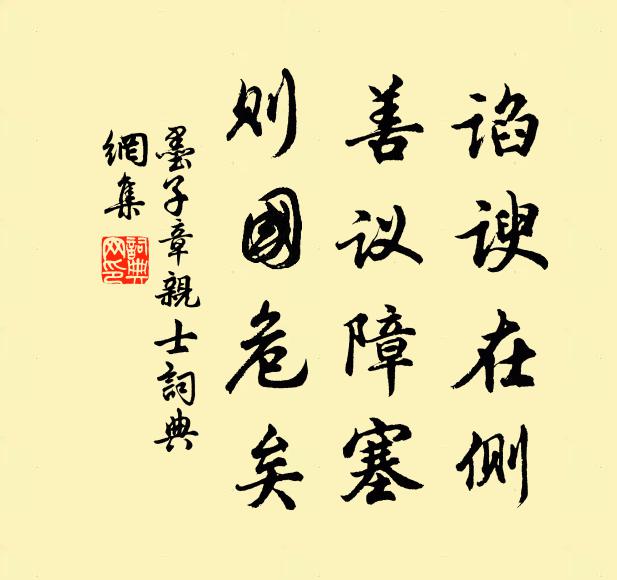 谄谀在侧
善议障塞
则國危矣
墨子章親士詞典
網集
詞典
网印